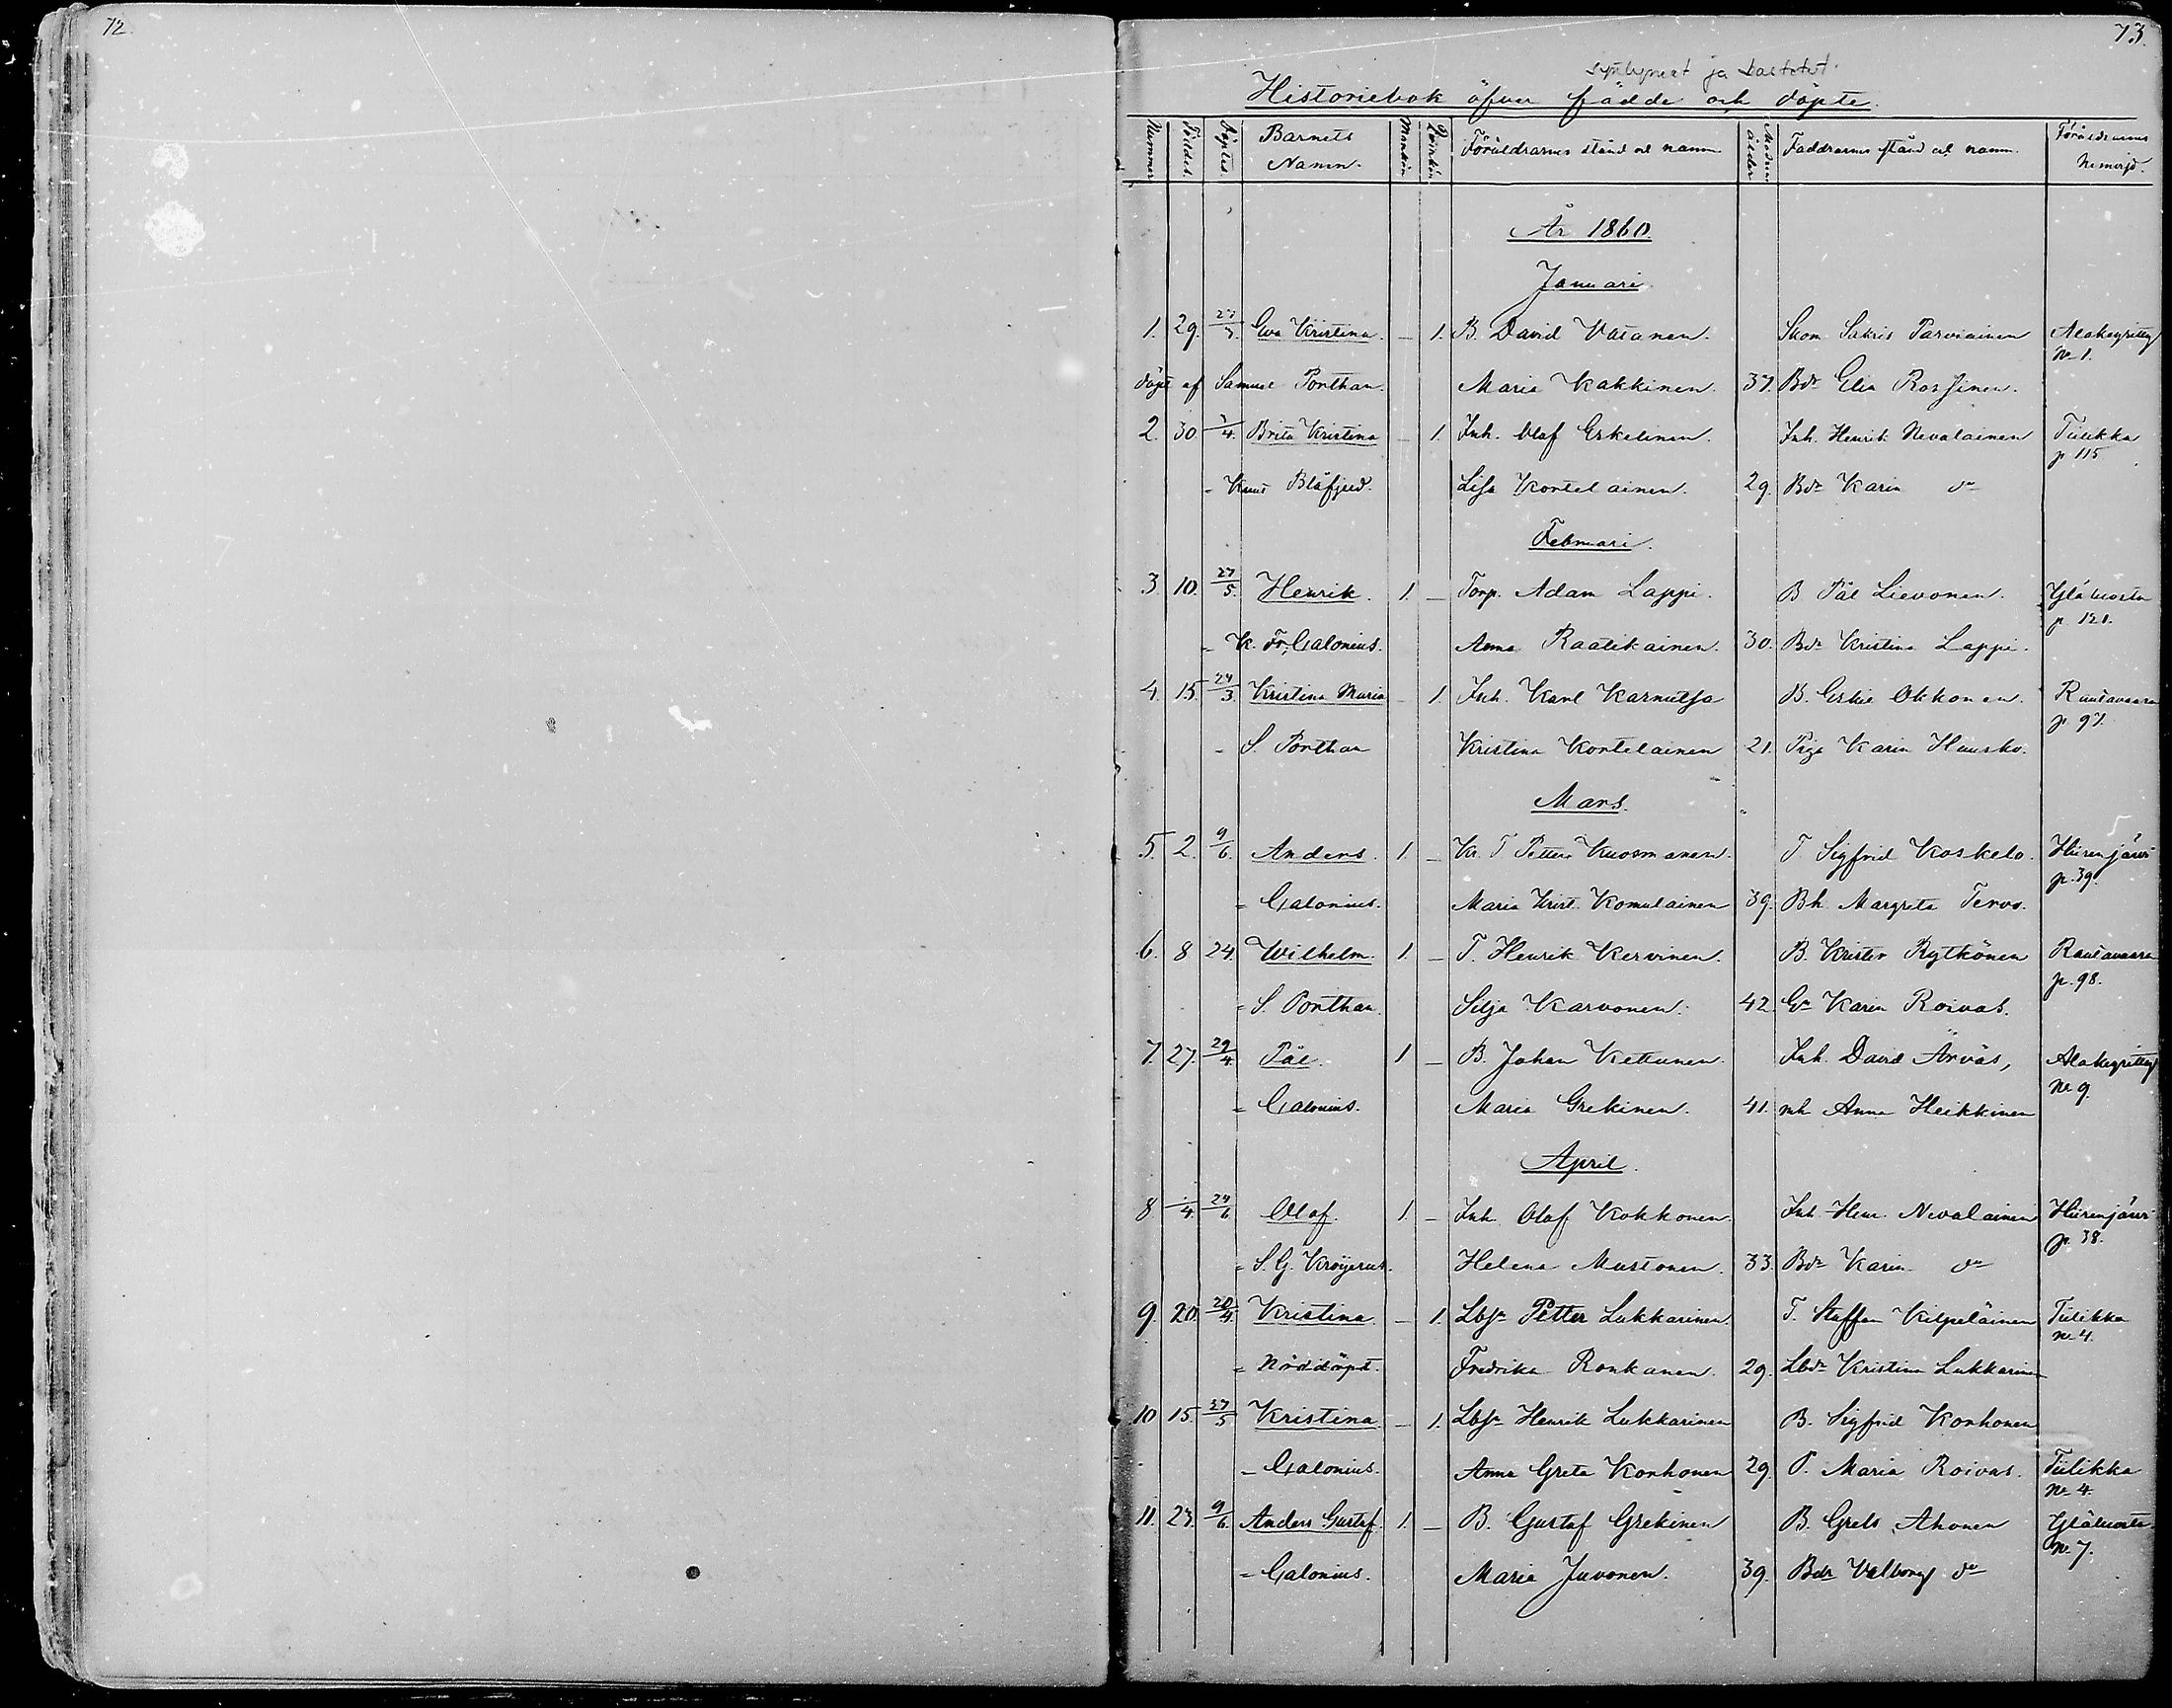 72.
73.
syntyneet ja kastetut.
Historiebok öfver födde och döpte.
Nummer Föddes. Döptes. Barnets Namn. Mankön Qvinkön Föräldrarnes stånd och namn Modrens ålder Faddrarnes stånd och namn. Föräldrarnes Hemvist.
År 1860.
Januari
1. 29. 27/3. Eva Kristina. — 1. B. David Vatanen. Skom. Sakris Parviainen Alakeyritty
No 1.
döpt af Samuel Ponthan. Maria Kakkinen. 37. Bdr Elin Rossinen.
2. 30 /4. Brita Kristina — 1. Inh. Olof Eskelinen. Inh. Henrik Nevalainen Tiilikka
p 115
= Knut Blåfjeld. Lisa Kortelainen. 29. Bdr Karin do
Februari.
3 10. 27/5. Henrik. 1. — Torp. Adam Lappi. B Pål Lievonen. Ylä Luosta
p. 121.
= K. Fr. Calonius. Anna Raatikainen. 30. Bdr Kristina Lappi.
4. 15. 24/3. Kristina Maria — 1. Inh. Karl Karnutsa B. Erkie Okkonen. Rautavaara
p. 97.
= S. Ponthan Kristina Kortelainen 21. Piga Karin Huusko.
Mars.
5. 2. 9/6. Anders. 1. — Kr. T Petter Kuosmanen. T Sigfrid Koskelo. Hiirenjärvi
p. 39.
= Calonius. Maria Krist. Komulainen 39. Bh Margreta Tervo.
6. 8 24. Wilhelm. 1. — T. Henrik Kervinen. B. Krister Rytkönen Rautavaara
p. 98.
= S. Ponthan. Silja Karvonen. 42. Ga Karin Roivas.
7. 27. 29/4. Pål. 1 — B. Johan Kettunen. Inh. David Ärväs, Alakeyritty
No 9.
= Calonius. Maria Grekinen. 41. mh Anna Heikkinen
April.
8 /4. 24/6 Olof. 1. — Inh. Olof Kokkonen. Inh Henr. Nevalainen Hiirenjärvi
p. 38.
= S. G. Kröijerus. Helena Mustonen. 33. Bdr Karin do
9. 20. 20/4. Kristina — 1. Lbsn Petter Lukkarinen. T. Staffan Kilpeläinen Tiilikka
No 4.
= Nöddöpt. Fredrika Ronkanen. 29. Lbdr Kristina Lukkarinen
10 15. 27/5 Kristina — 1. Lbsn Henrik Lukkarinen B. Sigfrid Korhonen
= Calonius. Anna Greta Korhonen 29. P. Maria Roivas. Tiilikka
No 4.
11. 23. 9/6. Anders Gustaf. 1. — B. Gustaf Grekinen B. Grels Ahonen Yläluosta
No 7.
= Calonius. Maria Juvonen. 39. Bdr Valborg do